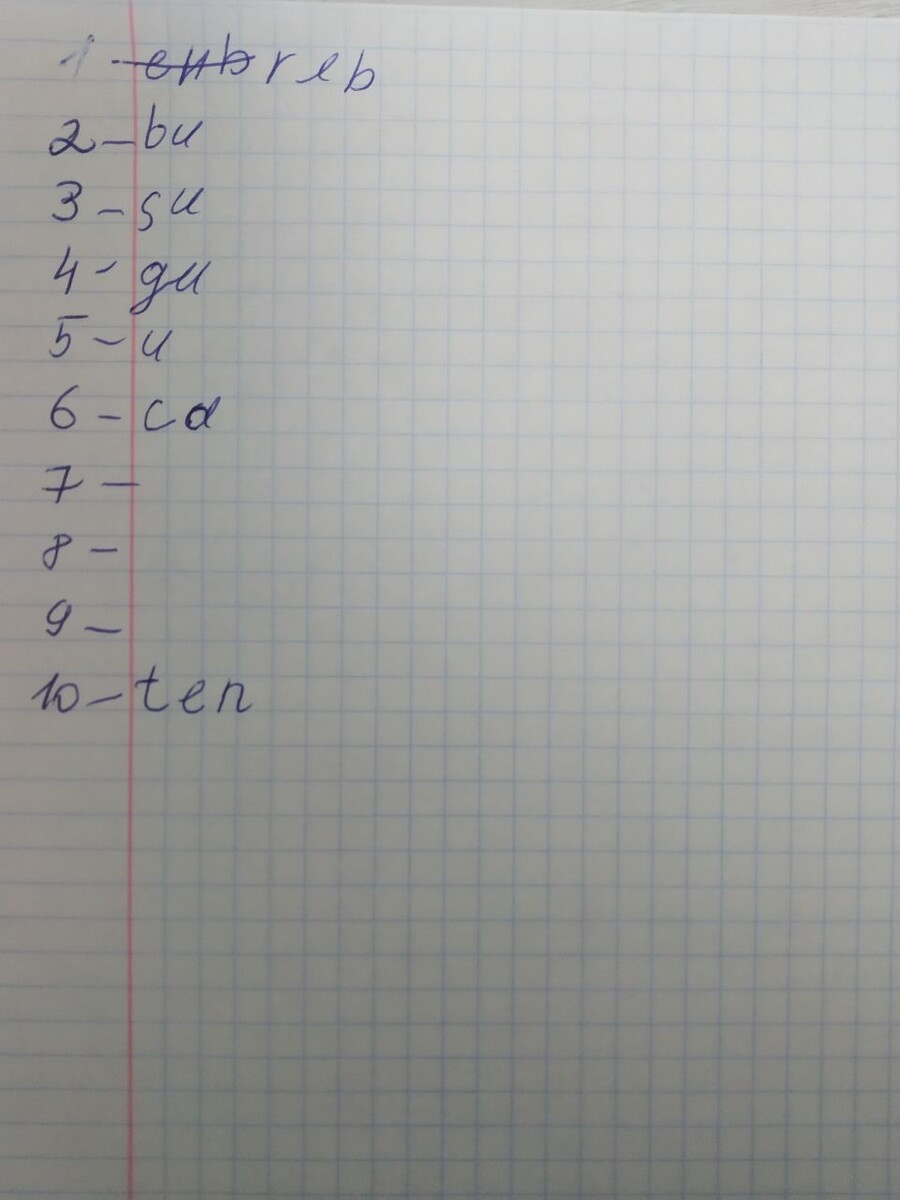 1 - reb
2 - bu
3 - su
4 - gu
5 - u
6 - cd
7 -
8 -
9 -
10 - ten